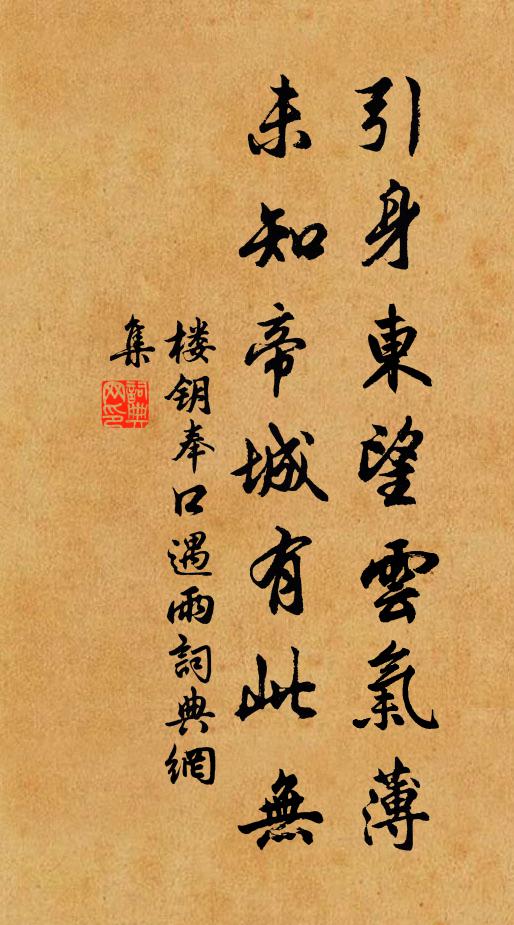 引身東望雲氣薄
未知帝城有此無
楼钥奉口遇雨詞典網
集
詞典
网印